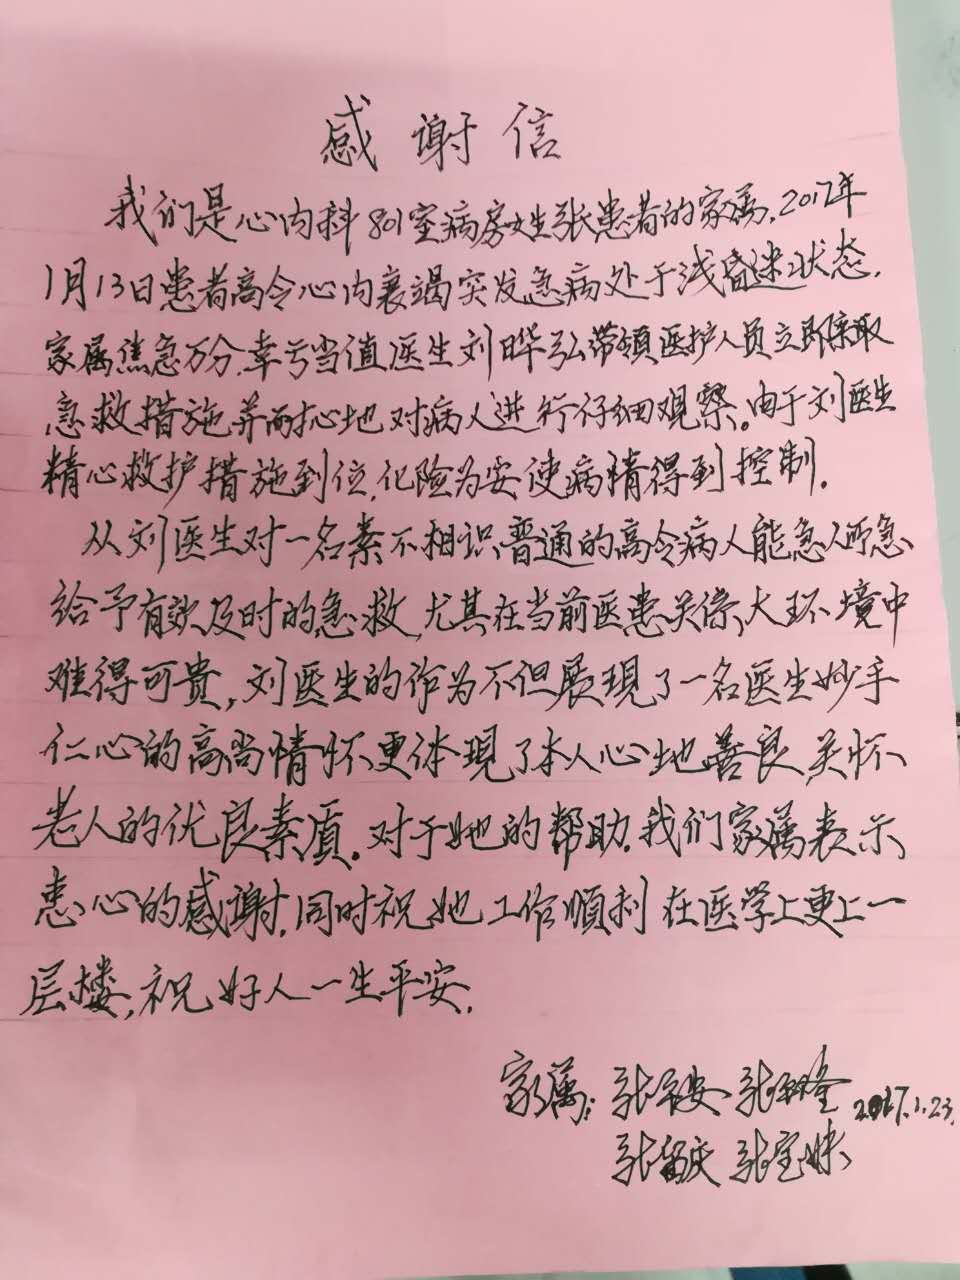 感谢信
我们是心内科801室病房女生张患者的家属.2017年
1月13日患者高令心内衰竭突发急病处于浅昏迷状态.
家属焦急万分.幸亏当值医生刘晔弘带领医护人员立即采取
急救措施并耐心地对病人进行仔细观察.由于刘医生
精心救护措施到位,化险为安使病情得到控制.
从刘医生对一名素不相识普通的高令病人能急人所急
给予有效及时的急救,尤其在当前医患关系大环境中
难得可贵,刘医生的作为不但展现了一名医生妙手
仁心的高尚情怀更体现了本人心地善良,关怀
老人的优良素质.对于她的帮助.我们家属表示
衷心的感谢.同时祝她工作顺利在医学上更上一
层楼,祝好人一生平安.
家属:张 安 张 2017.1.23.
张 庆 张宝妹